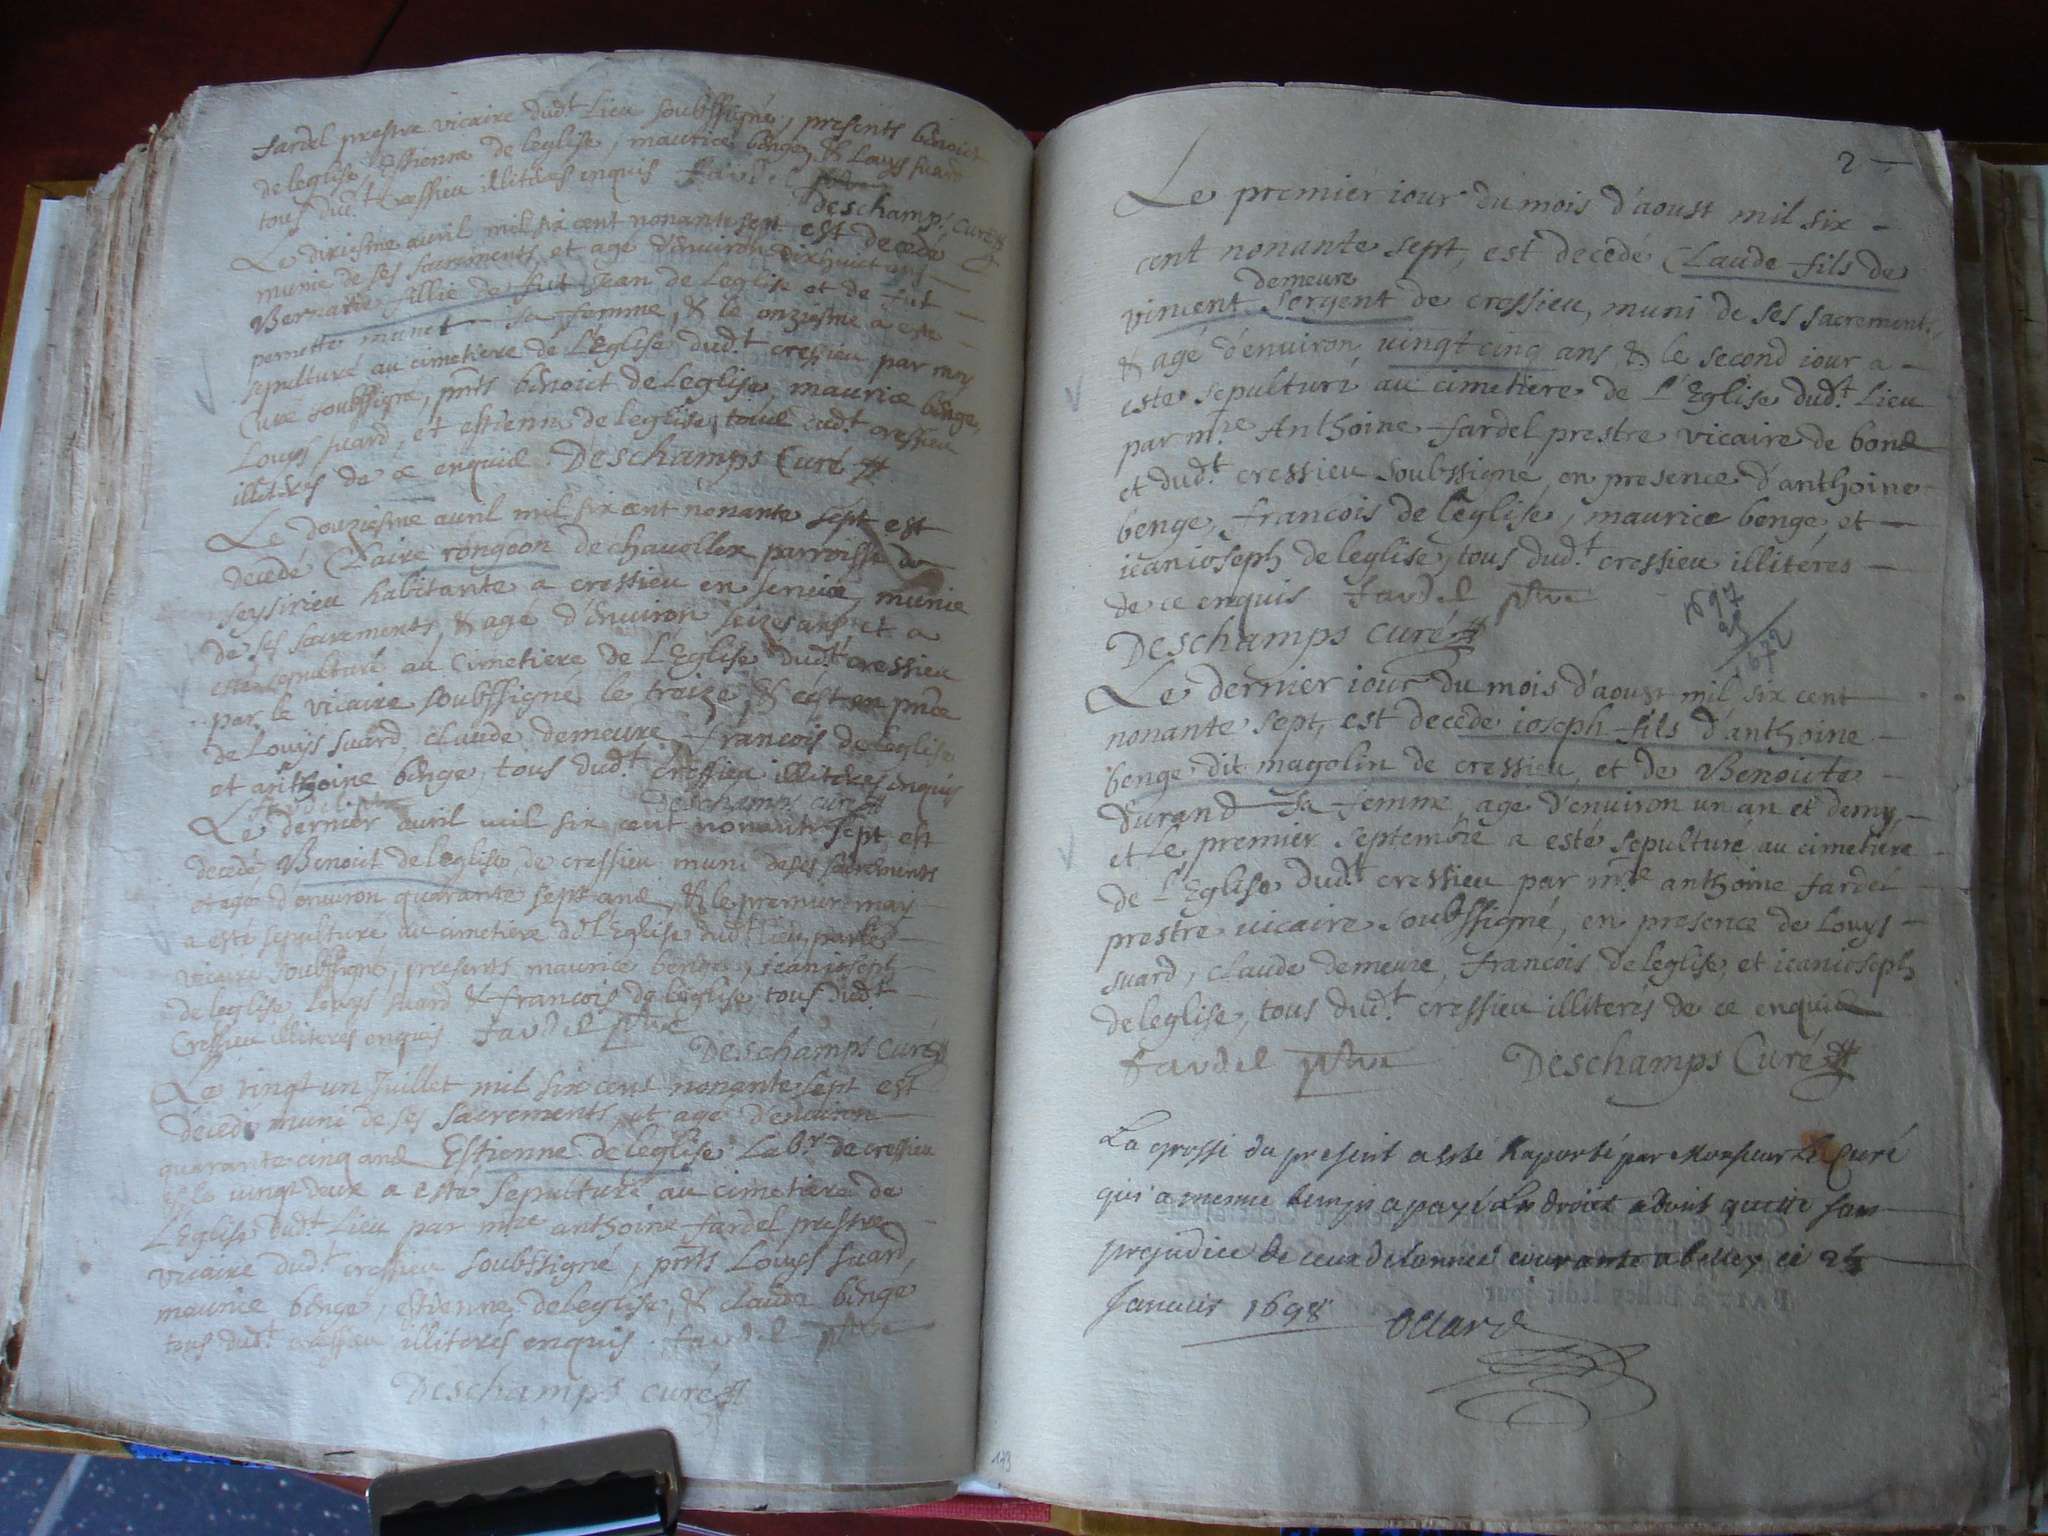 fardel prestre vicaire dud.t Lieu soubssigné, presents benoict
de leglise, Estienne de leglise, maurice benge, & Louys suard
tous dud.t Cressieu illiteres enquis fardel ptre
Deschamps Curé
Le dixiesme avril mil six cent nonante sept est decedé
munie de ses sacrements, et age d'environ dixhuict ans
Bernarde fillie de fut Jean de Leglise et de fut
pernette munet sa femme, & le onziesme a esté
sepulturé au cimetiere de L'Eglise dud.t cressieu par moy
Curé soubssigné, pnts benoict de Leglise, maurice benge,
Louys suard, et estienne de leglise, tous dud.t cressieu
illiteres de ce enquis Deschamps Curé
Le douziesme avril mil six cent nonante sept est
decedé Claire rongeon de chavollex parroisse de
seysirieu habitante a cressieu en service, munie
de ses sacrements, & age d'environ seize ans et a
esté sepulturé au Cimetiere de L'Eglise dud.t cressieu
par le vicaire soubssigné le treize, & c'est en pnce
de Louys suard, claude demeure, françois de leglise
et anthoine benge, tous dud.t cressieu illiteres enquis
fardel Deschamps curé
Le dernier avril mil six cent nonante sept, est
decedé Benoict de leglise, de cressieu muni de ses sacrements
et agé d'environ quarante sept ans, & le premier may
a esté sepulturé au cimetiere de l'Eglise dud.t lieu par le
vicaire soubssigné, presents maurice benge, jean joseph
de leglise, Louys suard & françois de leglise, tous dud.t
Cressieu illiteres enquis fardel ptre
Deschamps Curé
Le vingt un Juillet mil six cent nonante sept est
décédé muni de ses sacrements, et age d'environ
quarante cinq ans Estienne de leglise Lab.r de cressieu
& le vingt deux a esté sepulturé au cimetiere de
L'Eglise dud.t Lieu par m.re anthoine fardel prestre
vicaire dud.t cressieu soubssigné, pnts Louys suard,
maurice benge, estienne de leglise, & claude benge
tous dud.t cressieu illiterés enquis. fardel ptre
Deschamps curé
143
2
Le premier jour du mois d'aoust mil six
cent nonante sept, est decedé Claude fils de
demeure
vincent sergent de cressieu, muni de ses sacrements,
& agé d'environ vingt cinq ans, & le second jour a
esté sepulturé au cimetiere de L'Eglise dud.t Lieu
par m.re Anthoine fardel prestre vicaire de bons
et dud.t cressieu soubssigné, en presence d'anthoine
benge, francois de leglise, maurice benge, et
jean joseph de leglise, tous dud.t cressieu illitéres
de ce enquis fardel ptre
1697
25
1672
Deschamps curé
Le dernier jour du mois d'aoust mil six cent
nonante sept, est decede joseph fils d'anthoine
benge dit magolin de cressieu, et de Benoicte
Durand sa femme, agé d'environ un an et demy,
et Le premier septembre a esté sepulturé au cimetiere
de L'Eglise dud.t cressieu par m.re anthoine fardel
prestre vicaire soubssigné, en presence de Louys
suard, claude demeure, francois de leglise, et jean joseph
de leglise, tous dud.t cressieu illiterés de ce enquis
fardel ptre Deschamps Curé
La grosse du present a esté Raporté par Monsieur Le Curé
qui a mesme temps a payé Les droict a dont quitte sans
prejudice de ceux de Lannee courante a belley ce 24
Janvier 1698